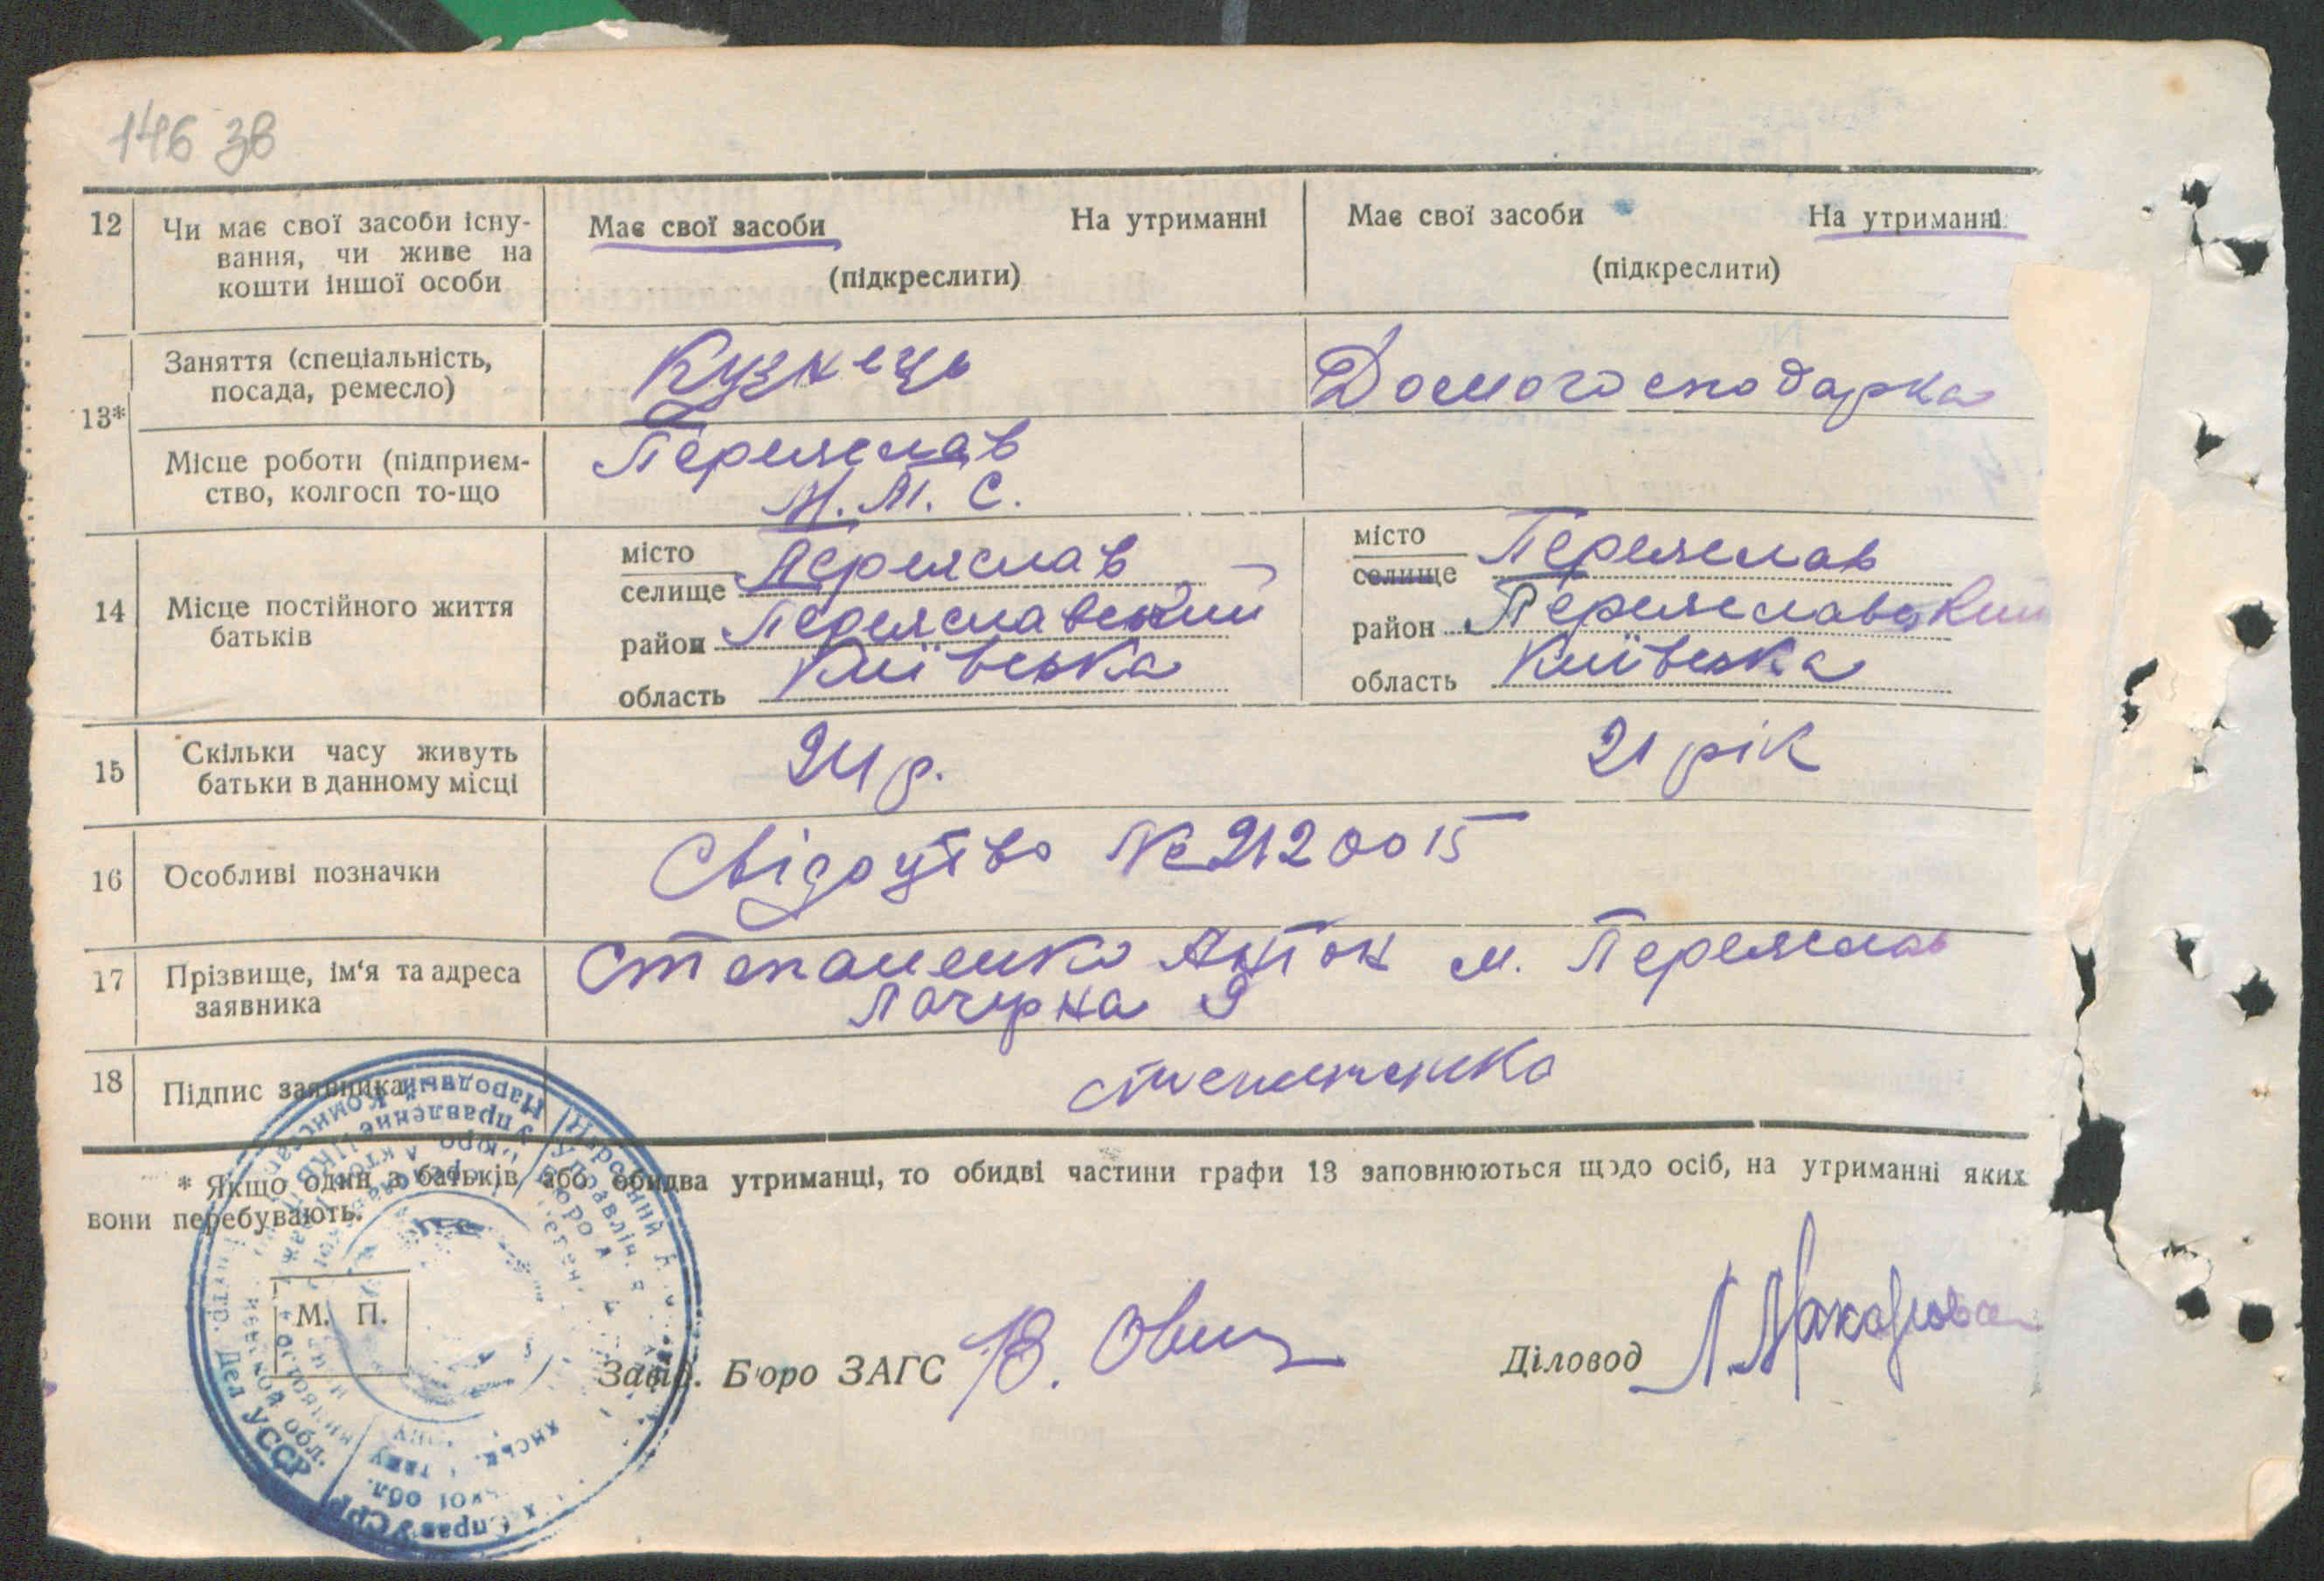 146 зв
12 Чи має свої засоби існу-
вання, чи живе на
кошти іншої особи
Має свої засоби На утриманні
(підкреслити)
Має свої засоби На утриманні
(підкреслити)
13* Заняття (спеціальність,
посада, ремесло)
Кузнець
Домогосподарка
Місце роботи (підприєм-
ство, колгосп то-що
Переяслав
М. Т. С.
14 Місце постійного життя
батьків
місто
селище Переяслав
район Переяславський
область Київська
місто
селище Переяслав
район Переяславский
область Київська
15 Скільки часу живуть
батьки в данному місці
24 р.
21 рік
16 Особливі позначки
Свідоцтво № 2120015
17 Прізвище, ім'я та адреса
заявника
Степаненко Антон м. Переяслав
18 Підпис заявника
* Якщо один з батьків або обидва утриманці, то обидві частини графи 13 заповнюються щодо осіб, на утриманні яких
вони перебувають.
М. П.
Завід. Бюро ЗАГС
Діловод Л. Макарова
Народный Комиссар
Внутр. Дел УССР
Управление
обл.
Справ УСРР